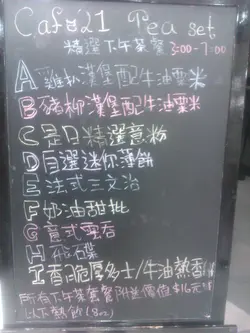 Cafe'21 Tea set
精選下午茶餐 3:00-7:00
A 雞扒漢堡配牛油粟米
B 豬柳漢堡配牛油粟米
C 是日精選意粉
D 自選迷你薄餅
E 法式三文治
F 奶油甜批
G 意式雲吞
H 飛碟
I 香脆厚多士/牛油熱香
所有下午茶套餐附送價值$16元
以下熱飲(8oz)